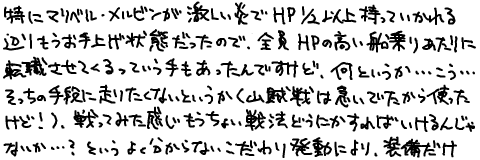 特にマリベル・メルビンが激しい炎でHP1/2以上持っていかれる
辺りもうお手上げ状態だったので、全員HPの高い船乗りあたりに
転職させてくるっていう手もあったんですけど、何というか…こう…
そっちの手段に走りたくないというか(山賊戦は急いでたから使った
けど!)、戦ってみた感じもうちょい戦法どうにかすればいけるんじゃ
ないか…?というよく分からないこだわり発動により、装備だけ